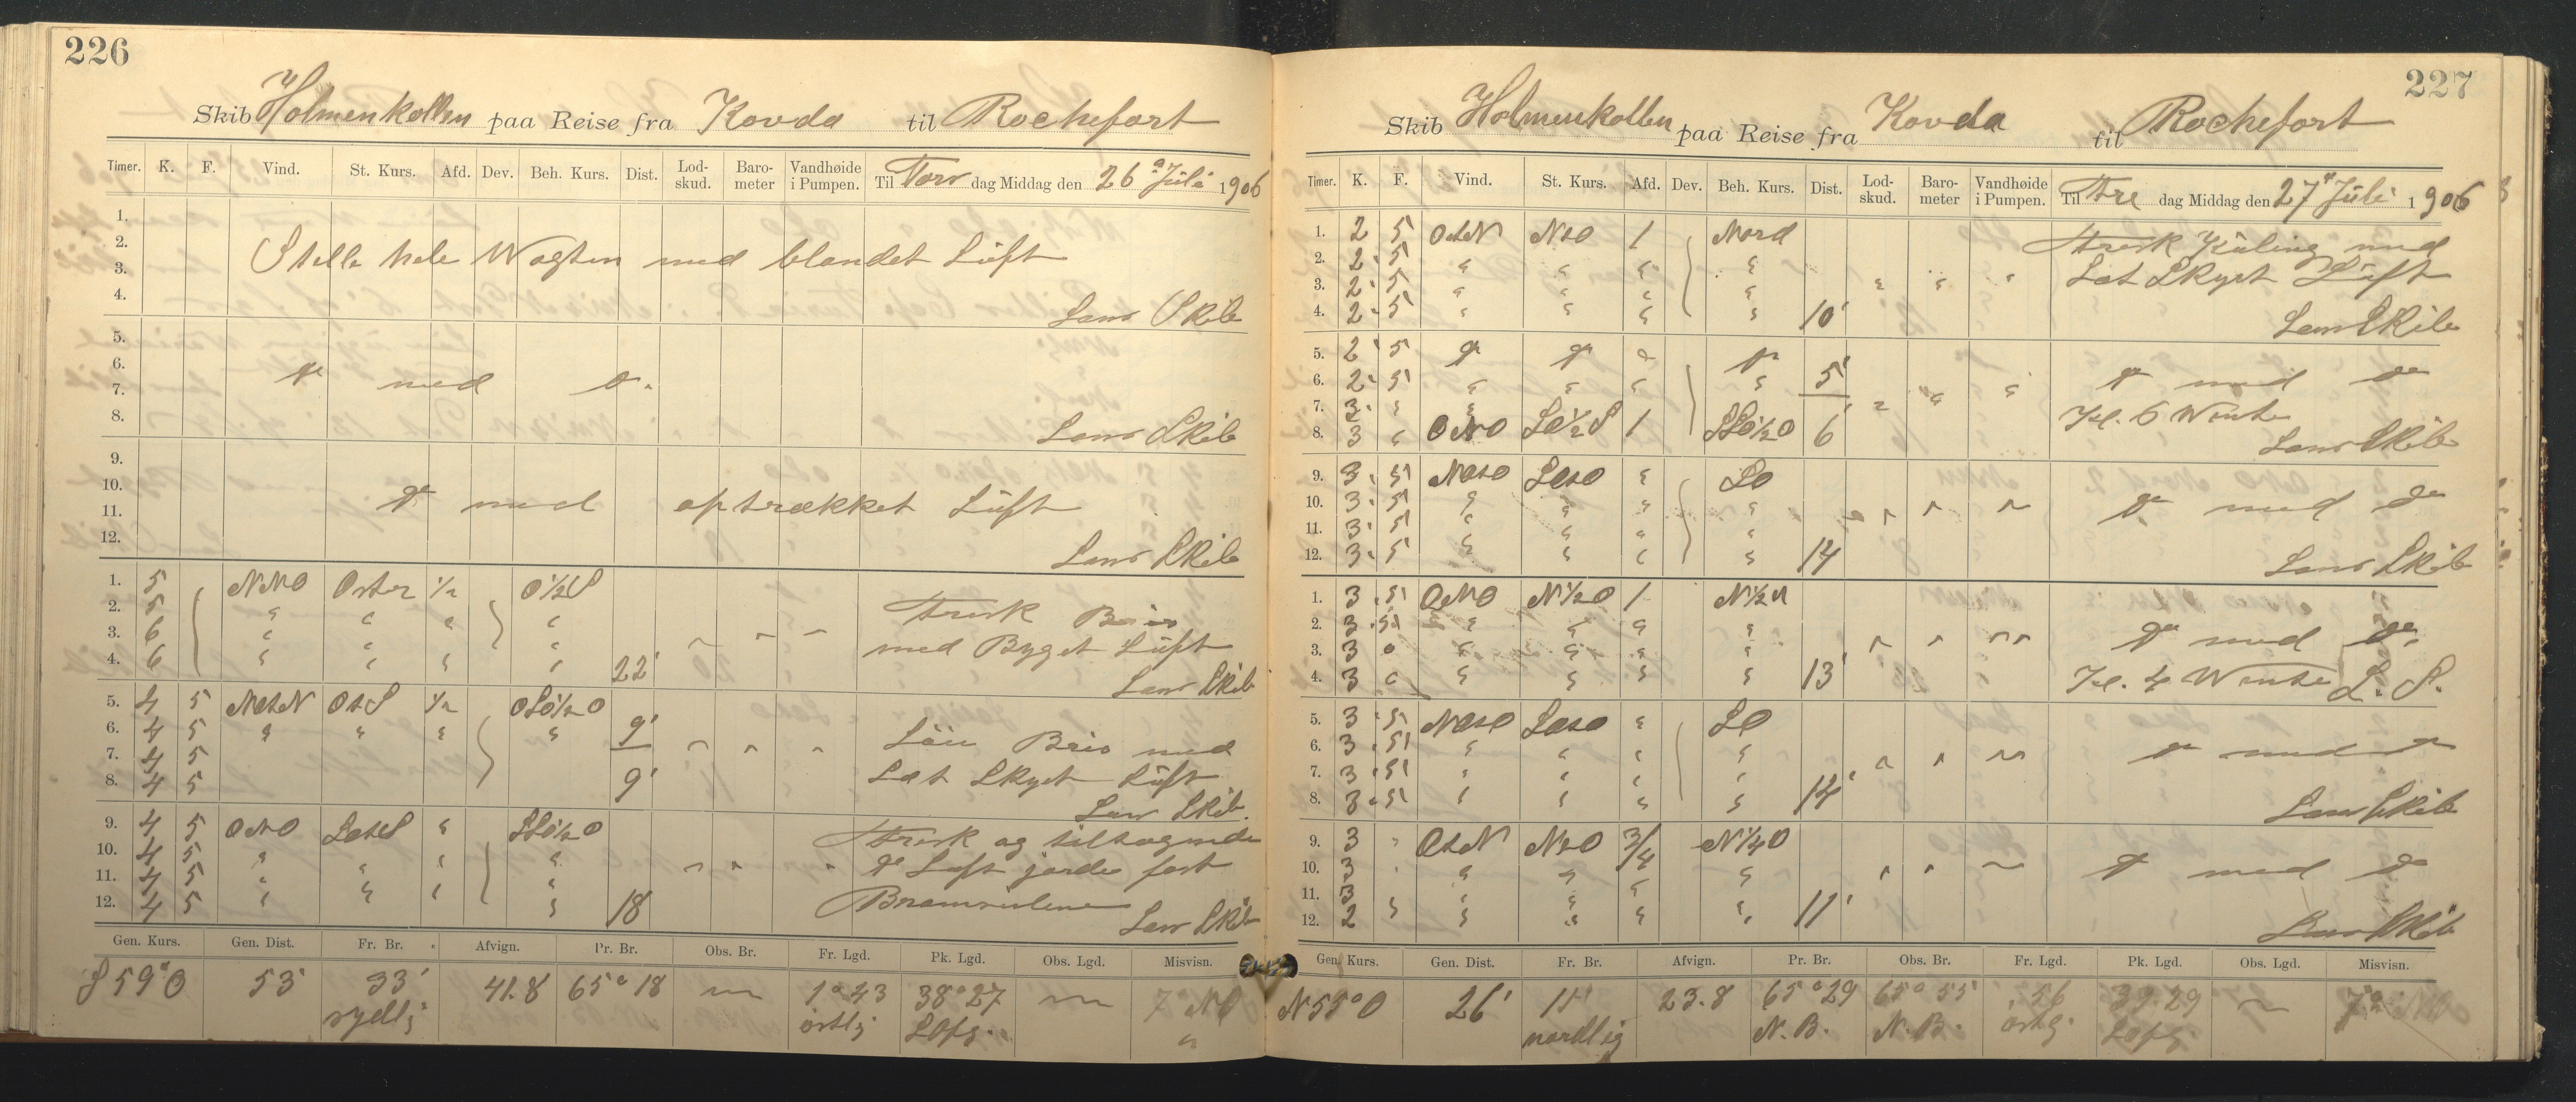 226
Skib Holmenkollen paa Reise fra Kovda til Rochefort
Timer. K. F. Vind. St. Kurs. Afd. Dev. Beh. Kurs. Dist. Lod-skud. Baro-meter Vandhøide i Pumpen. Til Tors dag Middag den 26 Juli 1906
1.
2. Stille hele Wagten med blandet Lüft
3.
4. Lens Skib
5.
6. do med do
7.
8. Lens Skib
9.
10. do med optrækket Lüft
11.
12. Lens Skib
1. 5 NNO Oster ½ O½S
2. 5 " " " " Frisk Bris
3. 6 " " " " med Byget Lüft
4. 6 " " " " 22' Lens Skib
5. 4 5 NOtN OtS ½ OSO½O
6. 4 5 " " " " 9' Löie Bris med
7. 4 5 Let Skyet Lüft
8. 4 5 9' Lens Skib.
9. 4 5 ONO SOtS " SSO½O Frisk og tiltagende
10. 4 5 " " " " do Luft gjorde fast
11. 4 5 " " " " Bramseilene
12. 4 5 " " " " 18 Lens Skib
Gen. Kurs. Gen. Dist. Fr. Br. Afvign. Pr. Br. Obs. Br. Fr. Lgd. Pk. Lgd. Obs. Lgd. Misvisn.
S 59° O 53' 33' sydlig 41.8 65° 18 — 1° 43 østlig 38° 27 — 7° NO
227
Skib Holmenkollen paa Reise fra Kovda til Rochefort
Timer. K. F. Vind. St. Kurs. Afd. Dev. Beh. Kurs. Dist. Lod-skud. Baro-meter Vandhøide i Pumpen. Til Fre dag Middag den 27 Juli 1906
1. 2 5 OtN NtO 1 Nord Frisk Küling med
2. 2 5 " " " " Let Skyet Lüft
3. 2 5 " " " "
4. 2 5 " " " " 10' Lens Skib
5. 2 5 do do do do
6. 2 5 " " " " 5' do med do
7. 3 " " Kl. 6 Wente
8. 3 " ONO SO½S 1 SSO½O 6' Lens Skib
9. 3 5 SO
10. 3 5 " " " " do med do
11. 3 5 " " " "
12. 3 5 " " " " 14 Lens Skib
1. 3 5 ONO N½O 1
2. 3 5 " " " " do med do
3. 3 " " " "
4. 3 " " " " 13' Kl. 4 Wente L. S.
5. 3 5 SO
6. 3 5 " " " " do med do
7. 3 5 " " " "
8. 3 5 " " " " 14' Lens Skib
9. 3 " OtN NtO ¾ N¼O
10. 3 " " " " do med do
11. 3 " " " "
12. 2 " " " " 11' Lens Skib
Gen. Kurs. Gen. Dist. Fr. Br. Afvign. Pr. Br. Obs. Br. Fr. Lgd. Pk. Lgd. Obs. Lgd. Misvisn.
N 55° O 26' 11' nordlig 23.8 65° 29 N.B. 65° 55 N.B. 56 østlg. 39.29 — 7° NO